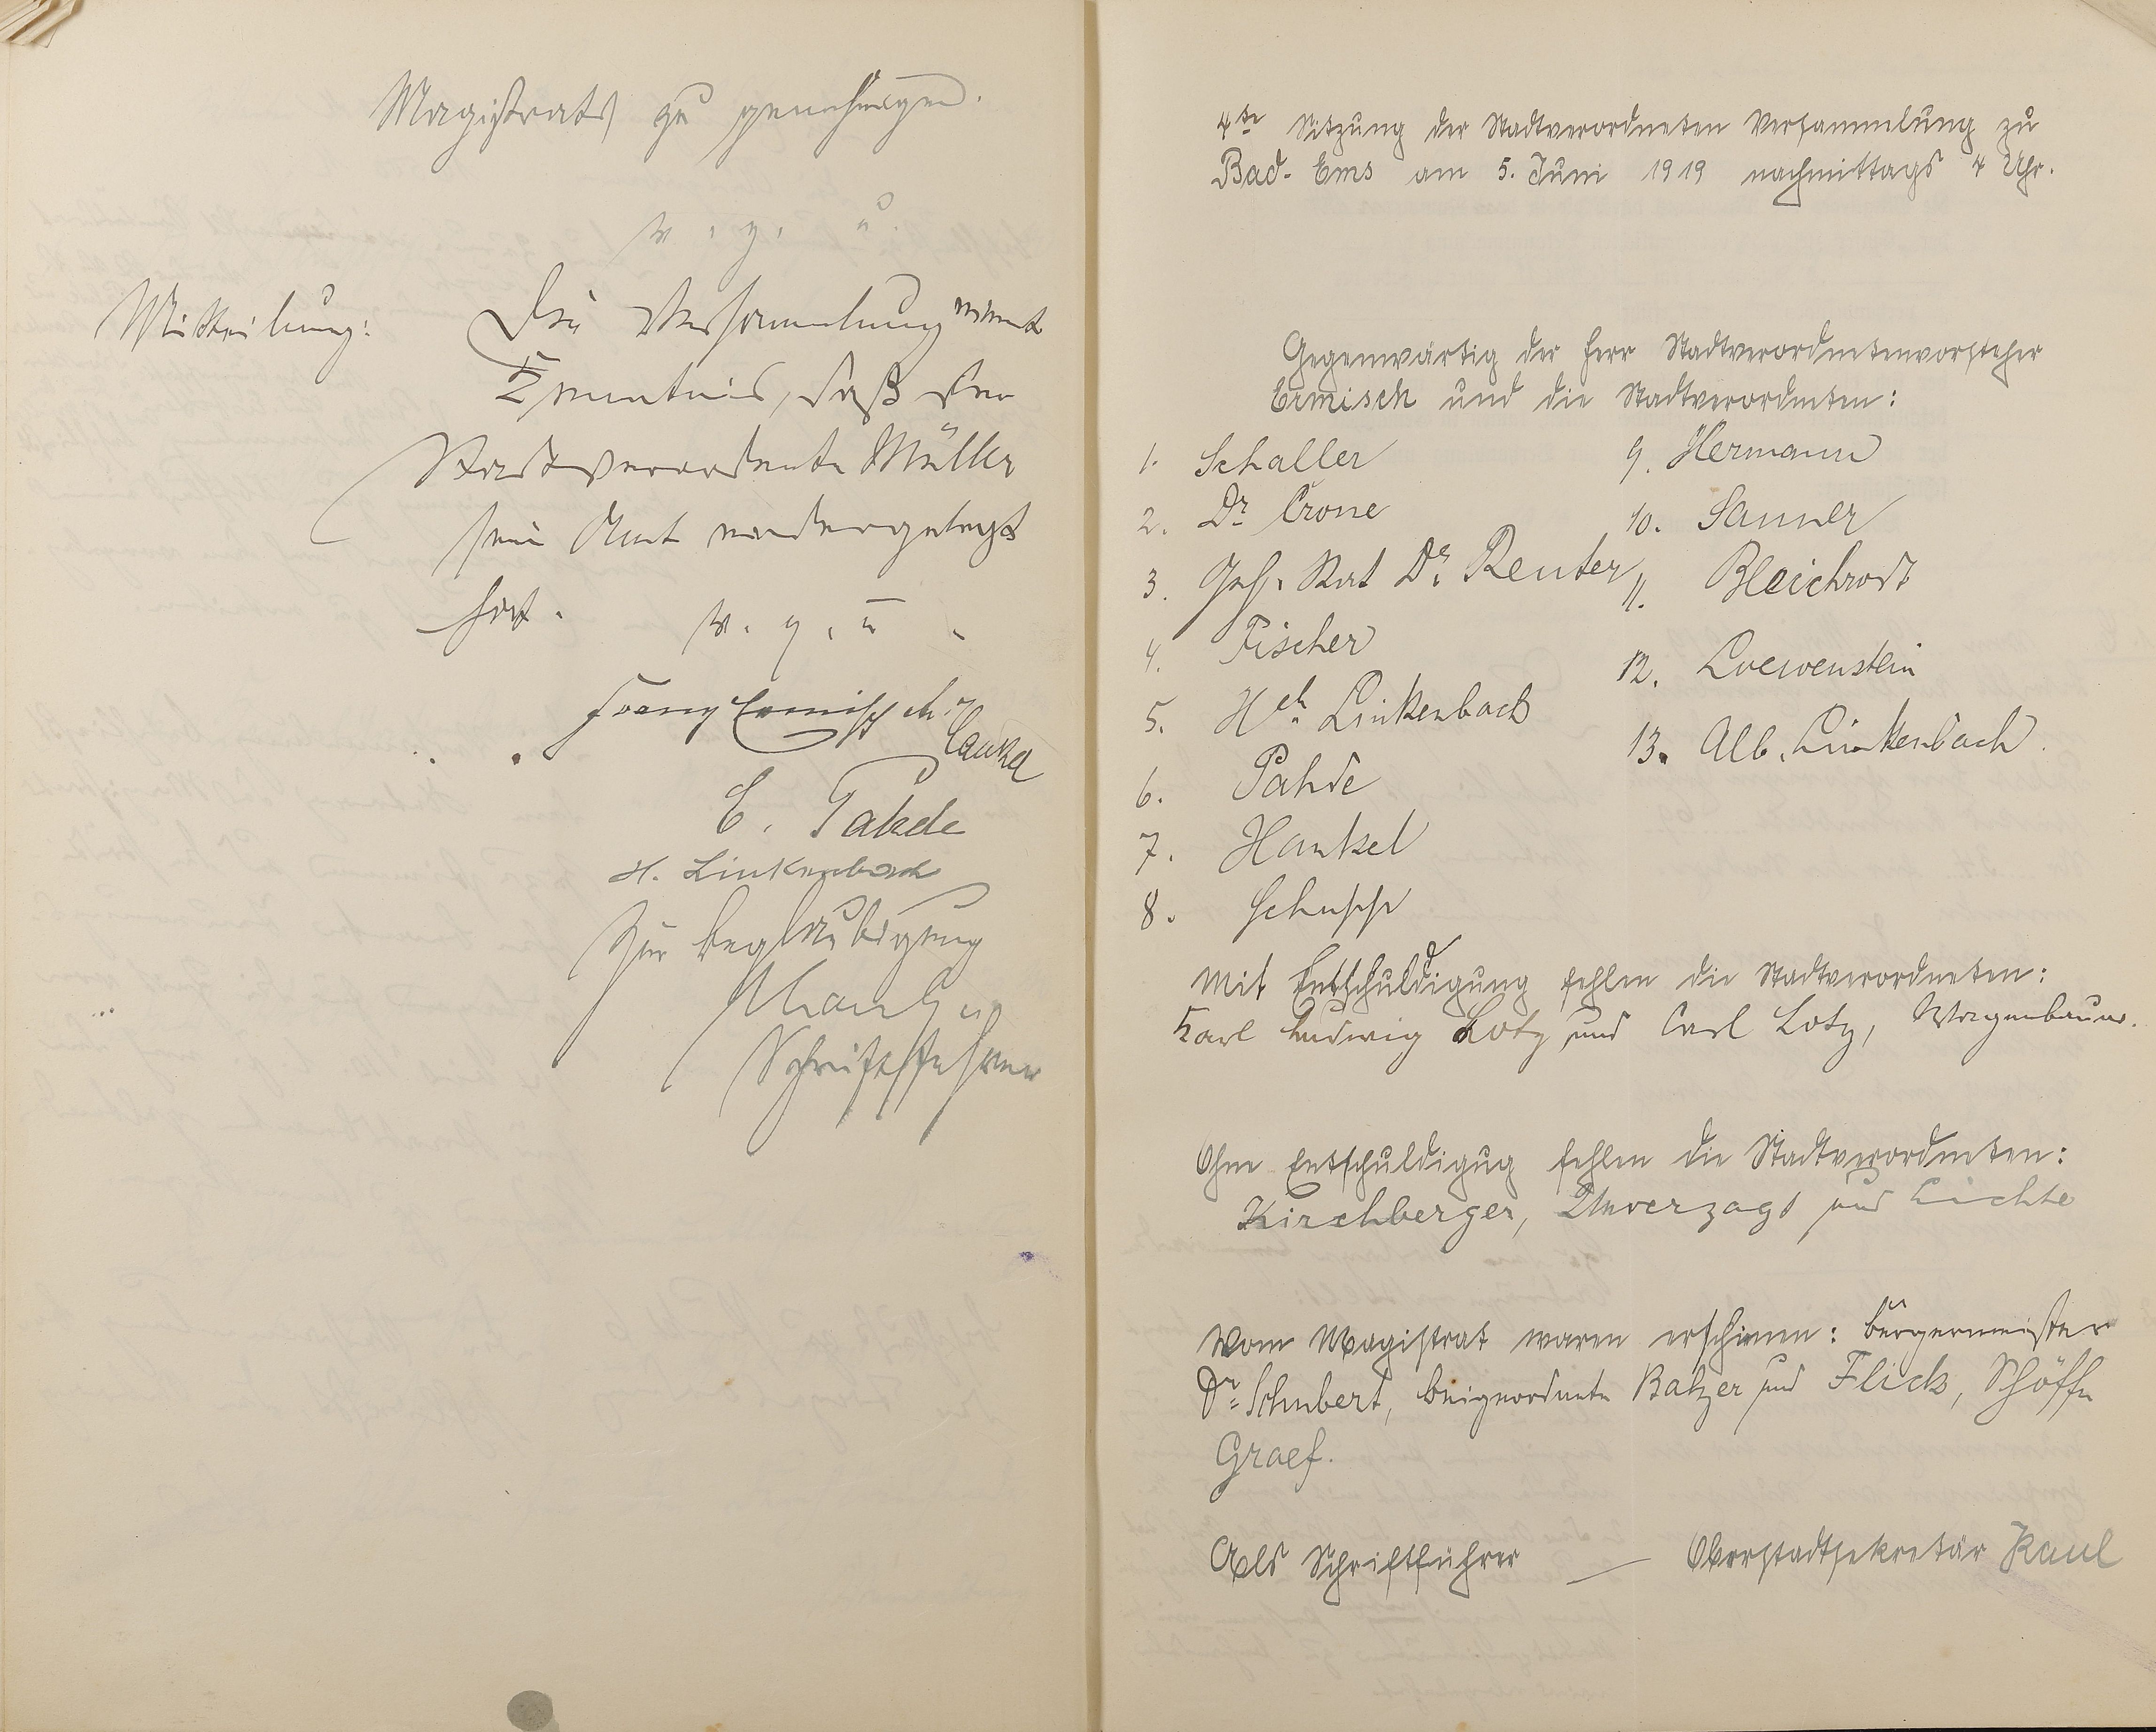 Magistrats zu genehmigen.
v. g. u.
Mitteilung:
Die Versammlung nimmt
Kenntnis, daß der
Stadtverordnete Müller
sein Amt niedergelegt
hat.
v. g. u.
Franz Ermisch
E. Pahde
H. Linkenbach
Zur Beglaubigung
Schriftführer
4te Sitzung der Stadtverordneten Versammlung zu
Bad-Ems am 5. Juni 1919 nachmittags 4 Uhr.
Gegenwärtig der Herr Stadtverordnetenvorsteher
Ermisch und die Stadtverordneten:
1. Schaller
2. Dr Crone
3. Geh. Rat Dr. Reuter
4. Fischer
5. Hch. Linkenbach
6. Pahde
7. Hankel
8. Schupp
9. Hermann
10. Sanner
11. Bleichrodt
12. Loewenstein
13. Alb. Linkenbach.
Mit Entschuldigung fehlen die Stadtverordneten:
Karl Ludwig Lotz und Carl Lotz, Wagenbauer.
Ohne Entschuldigug fehlen die Stadtverordneten:
Kirchberger, Unverzagt und Lichte
Vom Magistrat waren erschienen: Bürgermeister
Dr. Schubert, Beigeordnete Balzer und Flick, Schöffe
Graef.
Als Schriftführer — Oberstadtsekretär Kaul